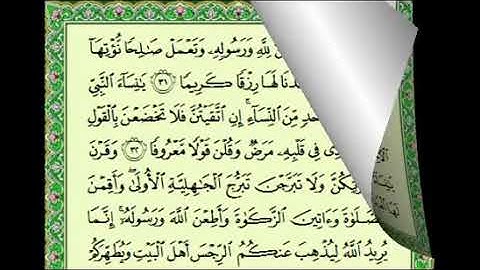 لِلَّهِ وَرَسُولِهِۦ وَتَعۡمَلۡ صَٰلِحٗا نُّؤۡتِهَآ
لَهَا رِزۡقٗا كَرِيمٗا ٣١ يَٰنِسَآءَ ٱلنَّبِيِّ
مِّنَ ٱلنِّسَآءِ إِنِ ٱتَّقَيۡتُنَّ فَلَا تَخۡضَعۡنَ بِٱلۡقَوۡلِ
فِي قَلۡبِهِۦ مَرَضٞ وَقُلۡنَ قَوۡلٗا مَّعۡرُوفٗا ٣٢ وَقَرۡنَ
وَلَا تَبَرَّجۡنَ تَبَرُّجَ ٱلۡجَٰهِلِيَّةِ ٱلۡأُولَىٰۖ وَأَقِمۡنَ
ٱلصَّلَوٰةَ وَءَاتِينَ ٱلزَّكَوٰةَ وَأَطِعۡنَ ٱللَّهَ وَرَسُولَهُۥٓۚ إِنَّمَا
يُرِيدُ ٱللَّهُ لِيُذۡهِبَ عَنكُمُ ٱلرِّجۡسَ أَهۡلَ ٱلۡبَيۡتِ وَيُطَهِّرَكُمۡ